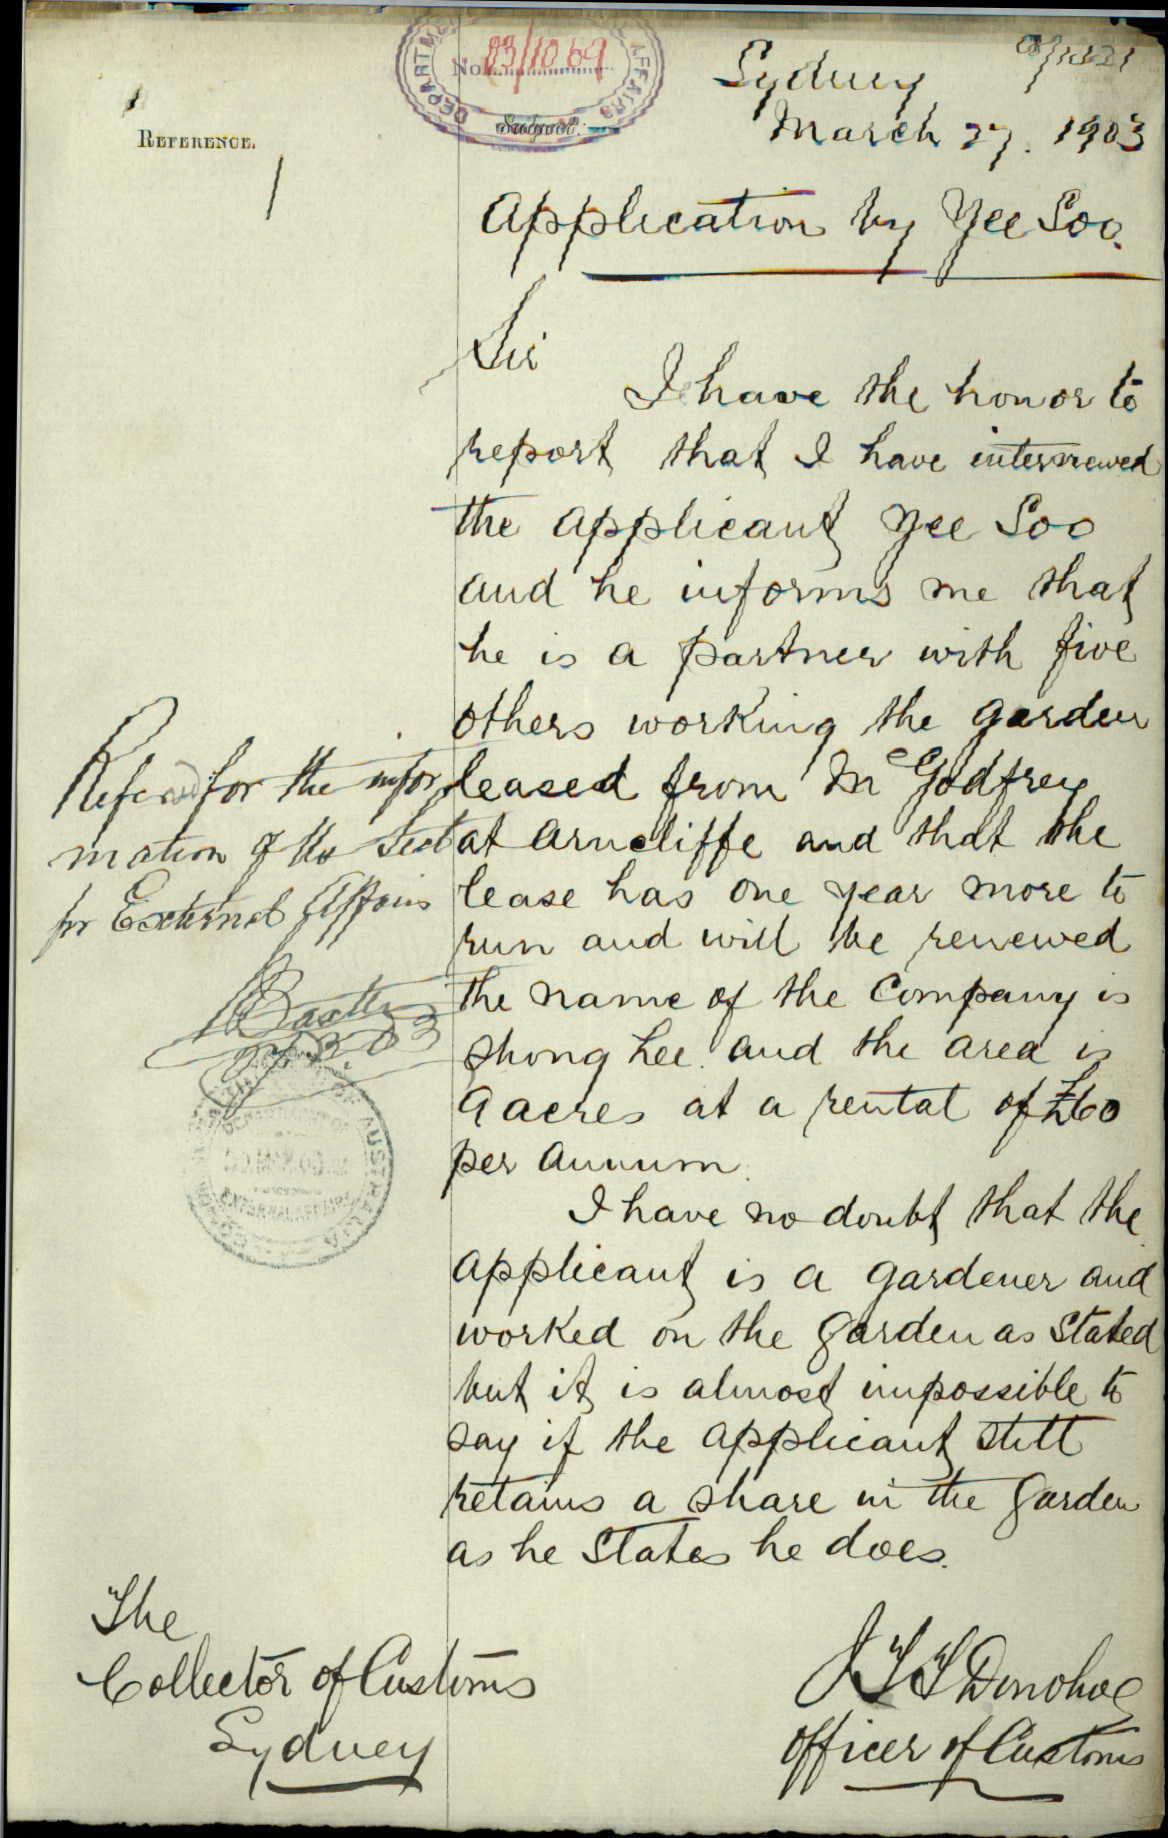 REFERENCE.
DEPARTMENT AFFAIRS
No. 03/1069
Subject:
Sydney
March 27. 1903
Application by Yee Soo.
Sir
I have the honor to
report that I have interviewed
the applicant Yee Soo
and he informs me that
he is a partner with five
others working the garden
leased from Mc Godfrey
at Arncliffe and that the
lease has one year more to
run and will be renewed
the name of the Company is
Shong Lee. and the area is
9 acres at a rental of £60
per annum.
I have no doubt that the
applicant is a gardener and
worked on the garden as Stated
but it is almost impossible to
say if the applicant still
retains a share in the garden
as he States he does.
Refered for the infor
mation of the Sect
for External Affairs
Baxter
27.3.03
AUSTRALIA
EXTERNAL AFFAIRS
The
Collector of Customs
Sydney
J T T Donohoe
Officer of Customs